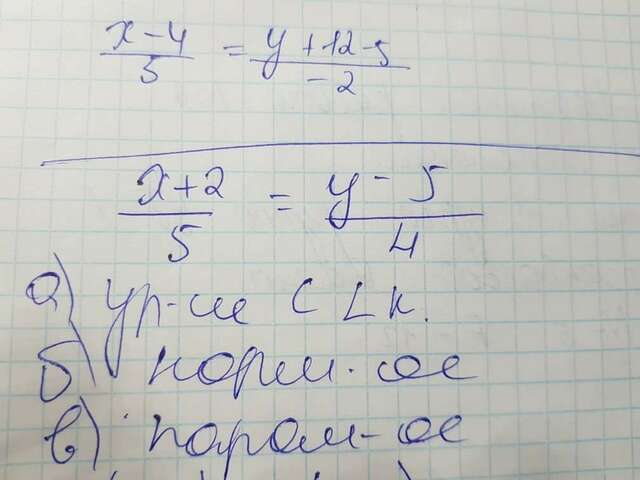 x-4/5 = y+12-5/-2
x+2/5 = y-5/4
а) ур-ие с L к.
б) норм-ое
в) парам-ое